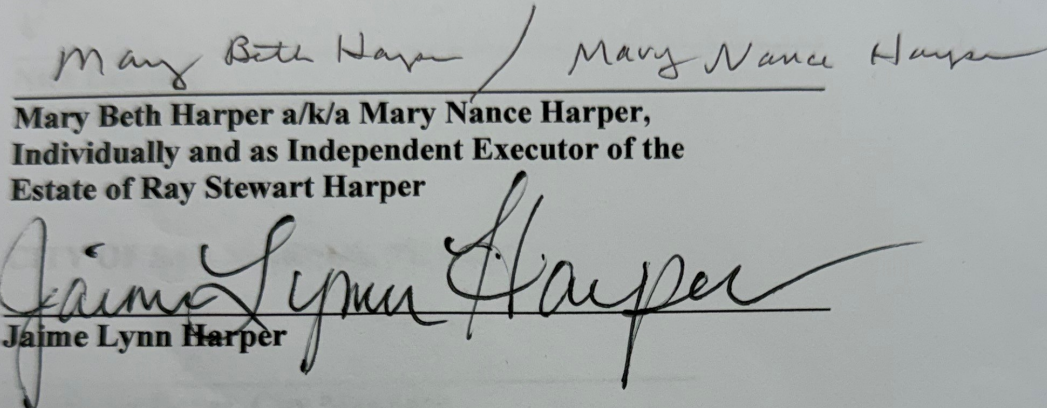 Mary Beth Harper / Mary Nance Harper
Mary Beth Harper a/k/a Mary Nance Harper,
Individually and as Independent Executor of the
Estate of Ray Stewart Harper
Jaime Lynn Harper
Jaime Lynn Harper